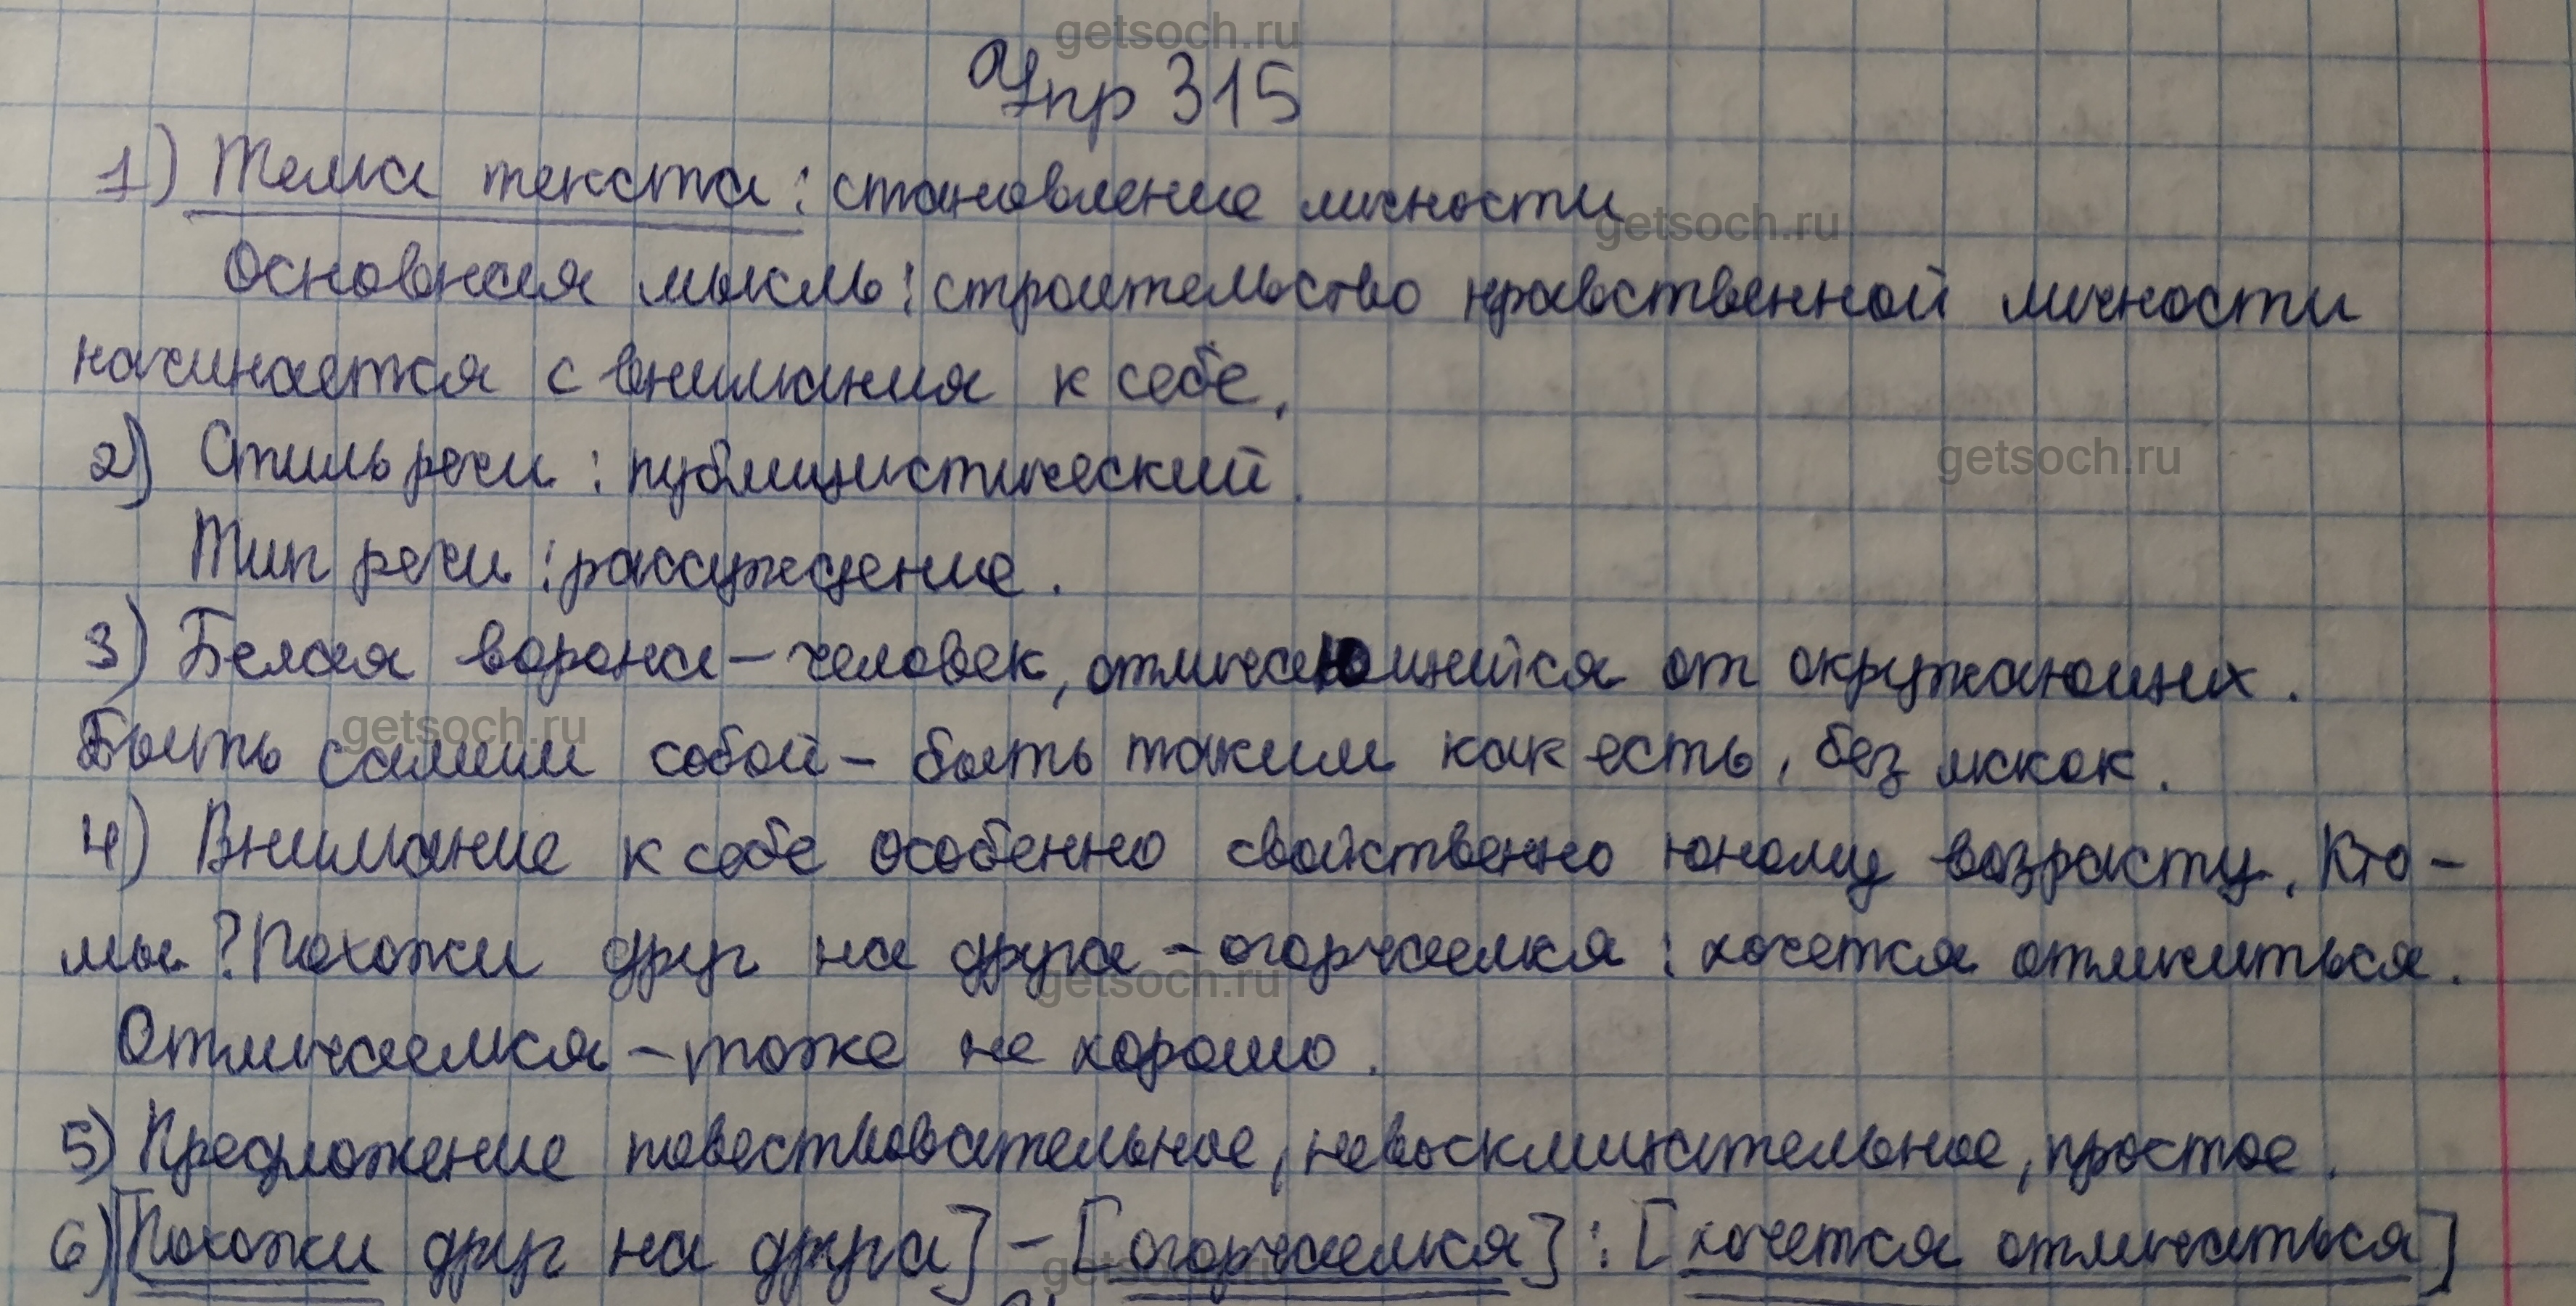 getsoch.ru
Упр 315
1) Тема текста: становление личности
getsoch.ru
Основная мысль: строительство нравственной личности
начинается с внимания к себе.
2) Стиль речи: публицистический.
getsoch.ru
Тип речи: рассуждение.
3) Белая ворона – человек, отличающийся от окружающих.
getsoch.ru
Быть самим собой – быть таким как есть, без масок.
4) Внимание к себе особенно свойственно юному возрасту. Кто –
мы? Похожи друг на друга – огорчаемся: хочется отличиться.
getsoch.ru
Отличаемся – тоже не хорошо.
5) Предложение повествовательное, невосклицательное, простое.
6) [Похожи друг на друга] – [огорчаемся]: [хочется отличаться]
getsoch.ru